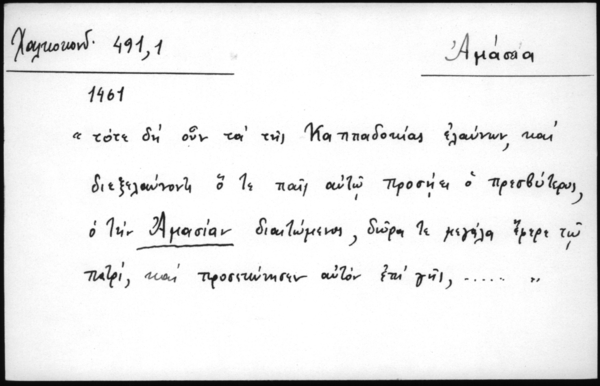 Χαλκοκονδ. 491,1
Ἀμάσεια
1461
" τότε δὴ οὖν τὰ τῆς Καππαδοκίας ἐλαύνων, καὶ
διεξελαύνοντι ὅ τε παῖς αὐτῷ προσῄει ὁ πρεσβύτερος,
ὁ τὴν Ἀμασίαν διαιτώμενος, δῶρα τε μεγάλα ἔφερε τῷ
πατρί, καὶ προσεκύνησεν αὐτὸν ἐπὶ γῆς, ..... "